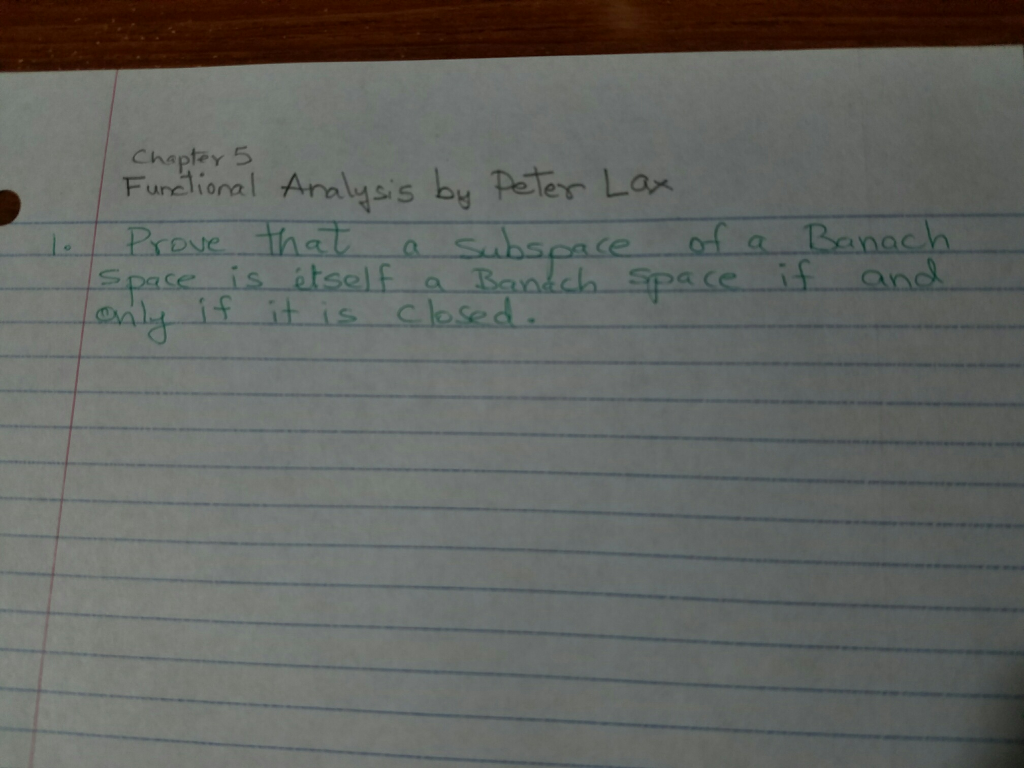 Chapter 5
Functional Analysis by Peter Lax
1. Prove that a subspace of a Banach
space is itself a Banach space if and
only if it is closed.